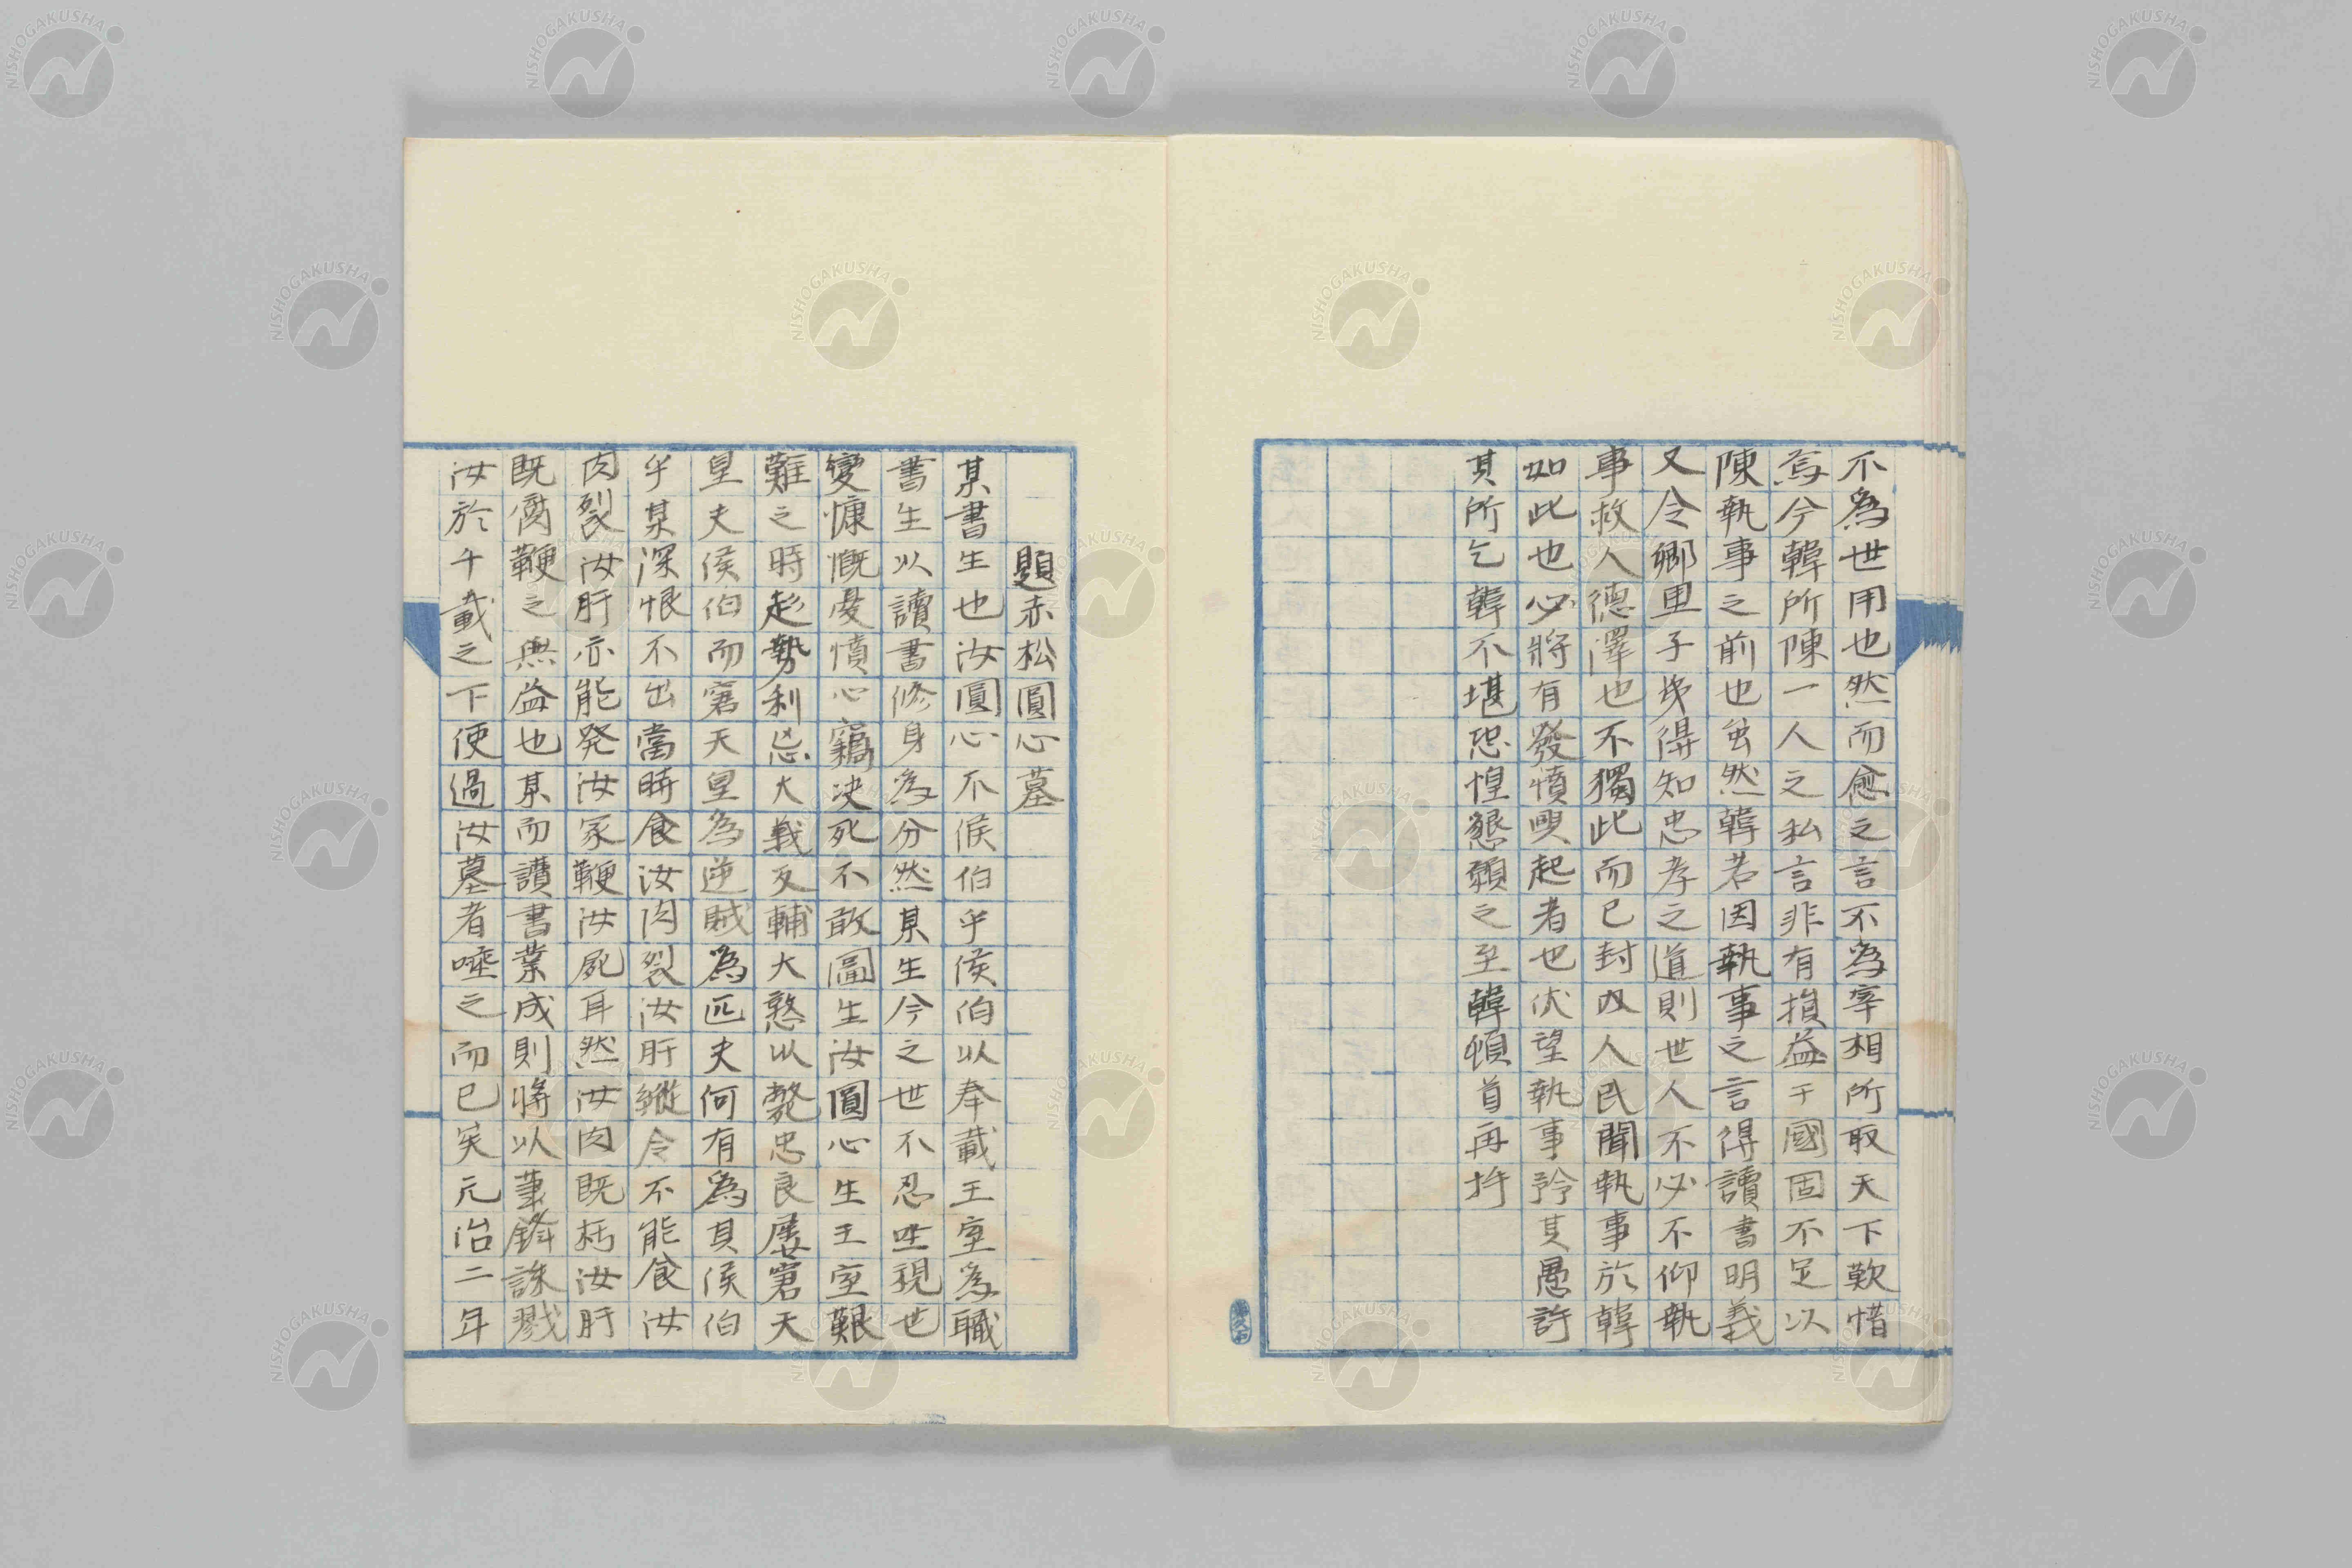 不為世用也然而愈之言不為宰相所取天下歎惜
焉今韓所陳一人之私言非有損益于國固不足以
陳執事之前也虽然韓若因執事之言得讀書明義
又令鄉里子弟得知忠孝之道則世人不必不仰執
事救人德澤也不獨此而已封内人民聞執事於韓
如此也必將有發憤興起者也伏望執事矜其愚許
其所乞韓不堪恐惶懇願之至韓頓首再拝
題赤松圓心墓
某書生也汝圓心不候伯乎侯伯以奉載王室為職
書生以讀書修身為分然某生今之世不忍坐視世
變慷慨憂憤心竊决死不敢啚生汝圓心生王室艱
難之時趁勢利忘大義反輔大憝以斃忠良屡窘天
皇夫侯伯而窘天皇為逆賊為匹夫何有為其侯伯
乎某深恨不出當時食汝肉裂汝肝縱令不能食汝
肉裂汝肝亦能発汝冢鞭汝屍耳然汝肉既朽汝肝
既腐鞭之無益也某而讀書業成則將以筆鋒誅戮
汝於千載之下使過汝墓者唾之而已矣元治二年
NISHOGAKUSHA